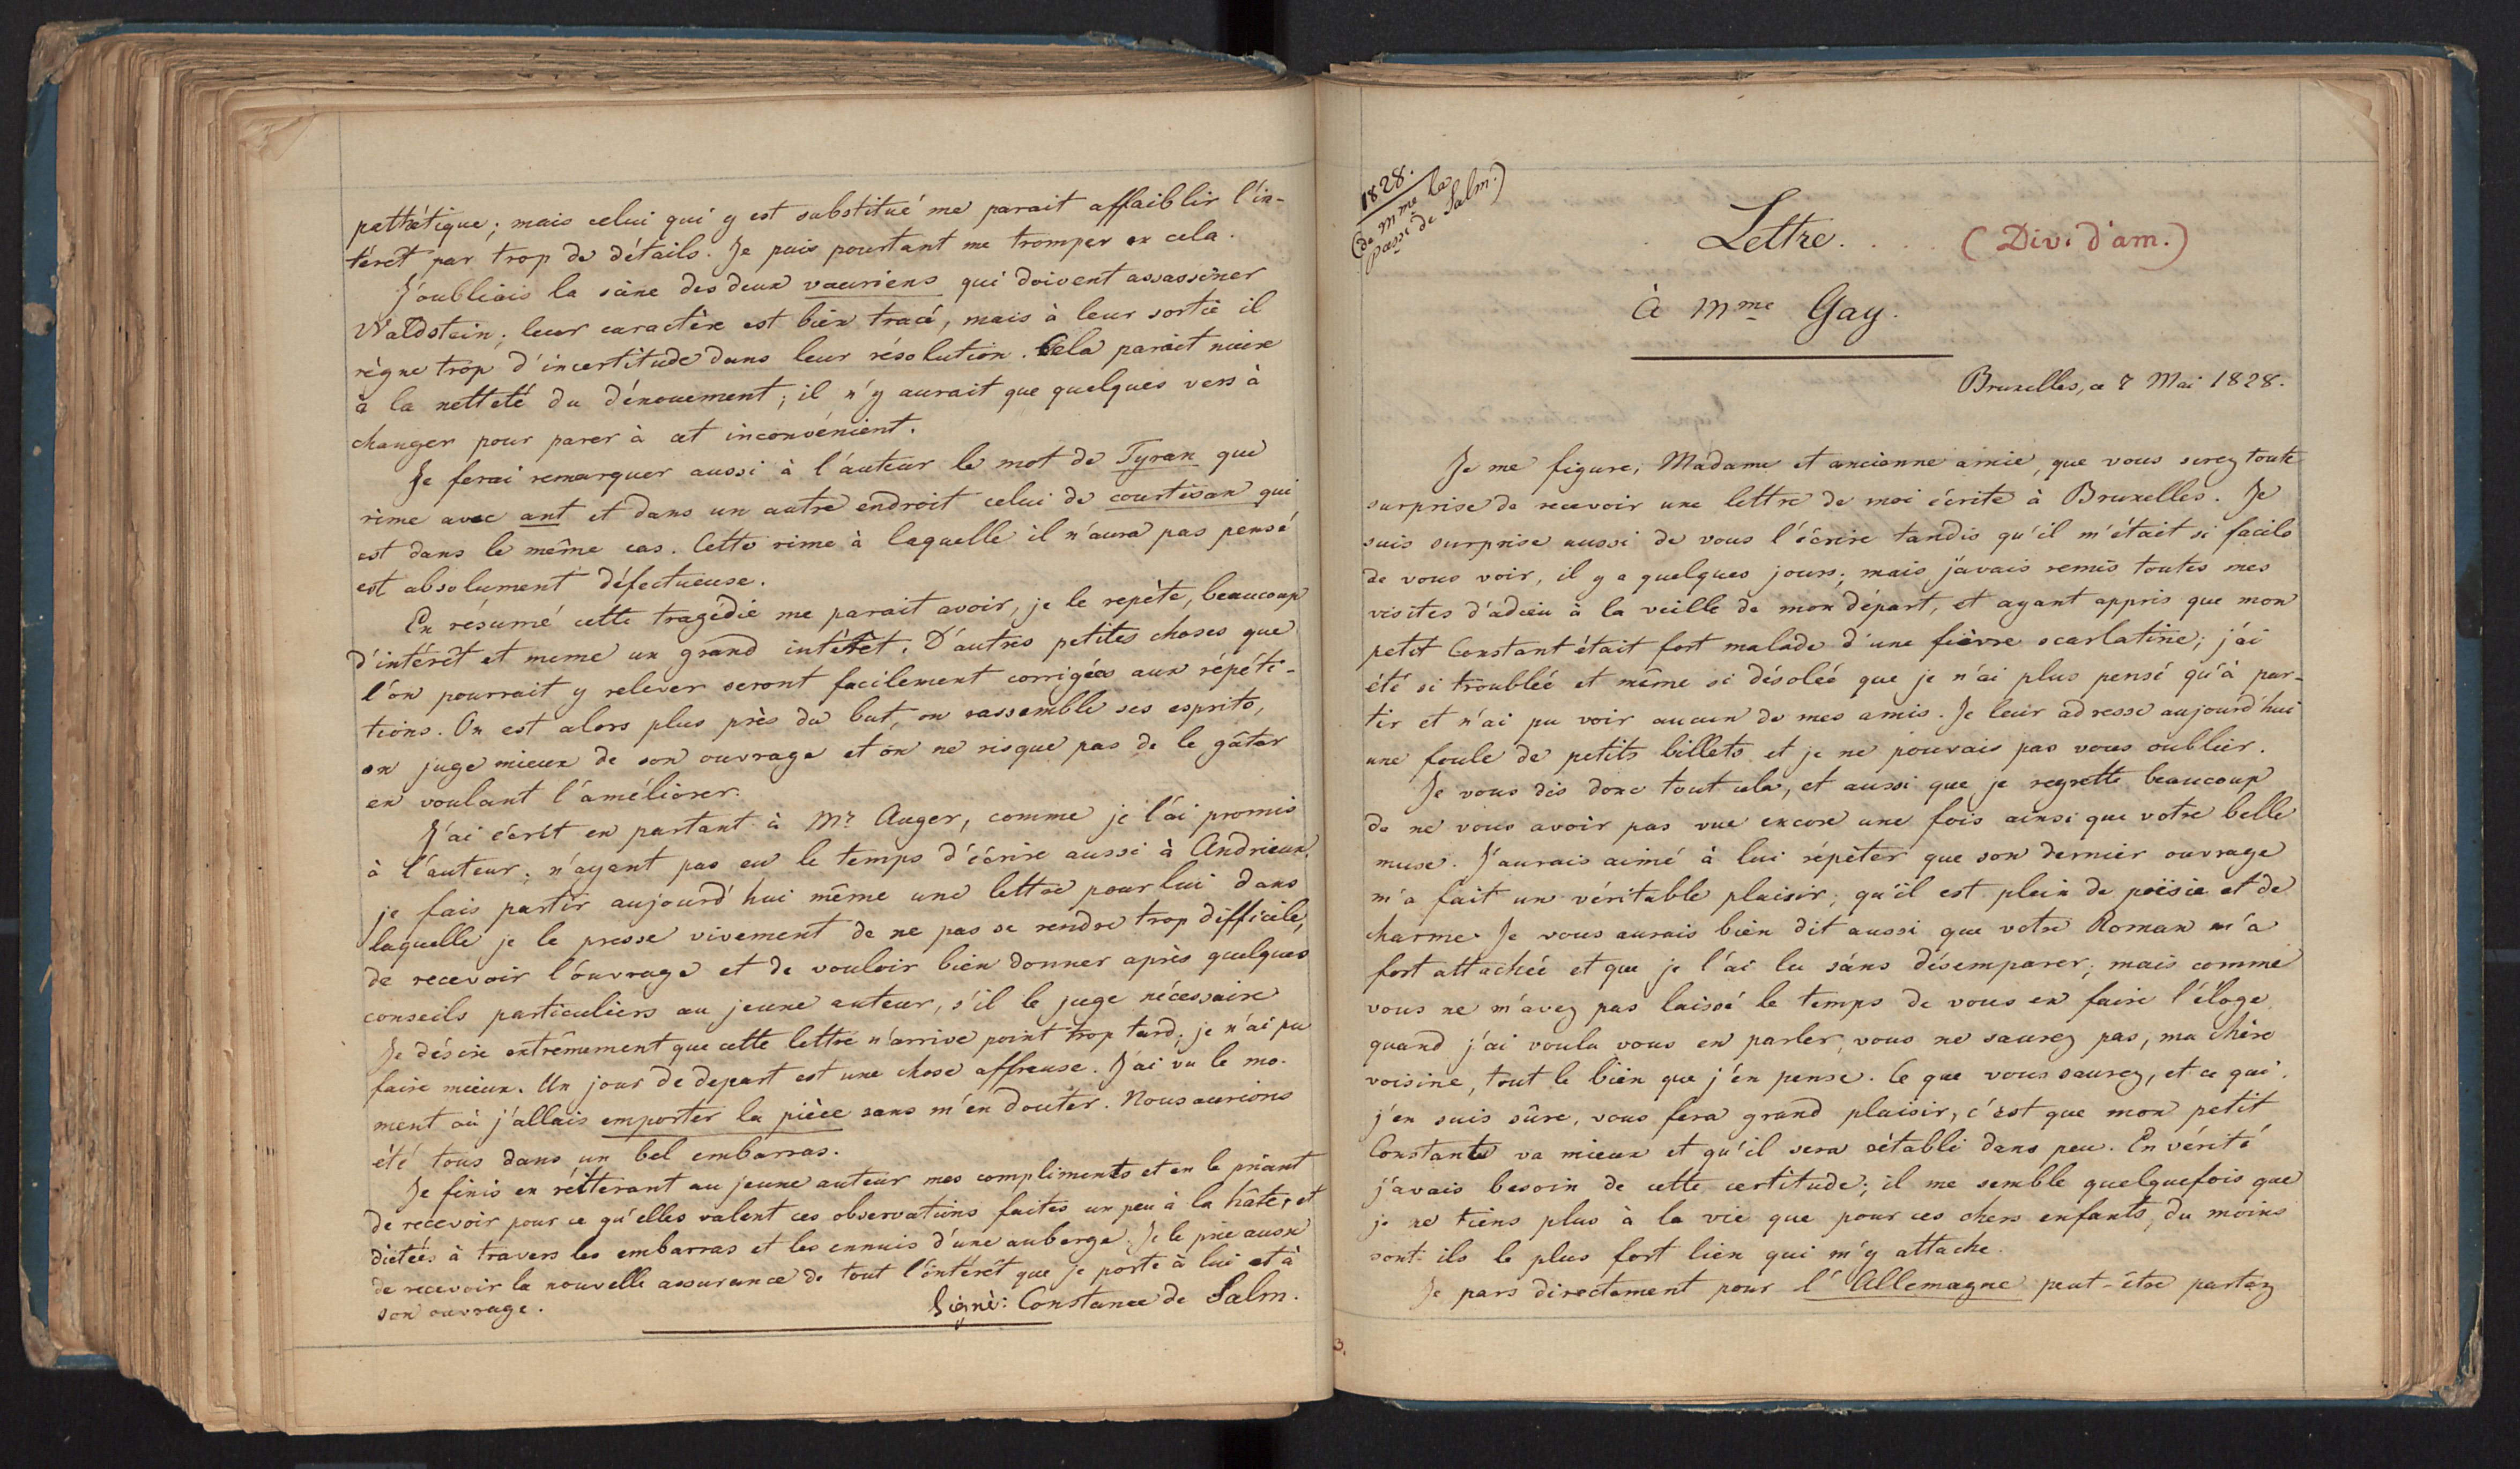 pathétique; mais celui qui y est substitué me parait affaiblir l'in-
térêt par trop de détails. Je puis pourtant me tromper en cela.
J'oubliais la scène des deux vauriens qui doivent assassiner
Waldstein; leur caractère est bien tracé, mais à leur sortie il
règne trop d'incertitude dans leur résolution. Cela parait nuire
à la netteté du dénouement; il n'y aurait que quelques vers à
changer pour parer à cet inconvénient.
Je ferai remarquer aussi à l'auteur le mot de Tyran que
rime avec ant et dans un autre endroit celui de courtisan qui
est dans le même cas. Cette rime à laquelle il n'aura pas pensé
est absolument défectueuse.
En résumé cette tragédie me parait avoir, je le repète, beaucoup
d'intérêt et meme un grand intérêt. D'autres petites choses que
l'on pourrait y relever seront facilement corrigées aux répéti-
tions. On est alors plus près du but, on rassemble ses esprits,
on juge mieux de son ouvrage et on ne risque pas de le gâter
en voulant l'améliorer.
J'ai écrit en partant à Mr Auger, comme je l'ai promis
à l'auteur; n'ayant pas eu le temps d'écrire aussi à Andrieux,
je fais partir aujourd'hui même une lettre pour lui dans
laquelle je le presse vivement de ne pas se rendre trop difficile,
de recevoir l'ouvrage et de vouloir bien donner après quelques
conseils particuliers au jeune auteur, s'il le juge nécessaire
Je désire extrêmement que cette lettre n'arrive point trop tard; je n'ai pu
faire mieux. Un jour de depart est une chose affreuse. J'ai vu le mo-
ment où j'allais emporter la pièce sans m'en douter. Nous aurions
été tous dans un bel embarras.
Je finis en réitterant au jeune auteur mes compliments et en le priant
de recevoir pour ce qu'elles valent ces observations faites un peu à la hâte, et
dictées à travers les embarras et les ennuis d'une auberge. Je le prie aussi
de recevoir la nouvelle assurance de tout l'intérêt que je porte à lui et à
son ouvrage.
Signé: Constance de Salm.
1828.
(de Mme la
Passe de Salm.)
Lettre. . . . (Div. d'am.)
à Mme Gay.
Bruxelles, ce 7 Mai 1828.
Je me figure, Madame et ancienne amie, que vous serez toute
surprise de recevoir une lettre de moi écrite à Bruxelles. Je
suis surprise aussi de vous l'écrire tandis qu'il m'était si facile
de vous voir, il y a quelques jours; mais j'avais remis toutes mes
visites d'adieu à la veille de mon départ, et ayant appris que mon
petit Constant était fort malade d'une fièvre scarlatine; j'ai
été si troublée et même si désolée que je n'ai plus pensé qu'à par-
tir et n'ai pu voir aucun de mes amis. Je leur adresse aujourd'hui
une foule de petits billets et je ne pouvais pas vous oublier.
Je vous dis donc tout cela, et aussi que je regrette beaucoup
de ne vous avoir pas vue encore une fois ainsi que votre belle
muse. J'aurais aimé à lui répéter que son dernier ouvrage
m'a fait un véritable plaisir; qu'il est plein de poësie et de
charme. Je vous aurais bien dit aussi que votre Roman m'a
fort attachée et que je l'ai lu sans désemparer; mais comme
vous ne m'avez pas laissé le temps de vous en faire l'éloge
quand j'ai voulu vous en parler, vous ne saurez pas, ma chère
voisine, tout le bien que j'en pense. Ce que vous saurez, et ce qui,
j'en suis sûre, vous fera grand plaisir, c'est que mon petit
Constant va mieux et qu'il sera rétabli dans peu. En vérité
j'avais besoin de cette certitude; il me semble quelquefois que
je ne tiens plus à la vie que pour ces chers enfants, du moins
sont-ils le plus fort lien qui m'y attache.
Je pars directement pour l'Allemagne peut-être partez
3.